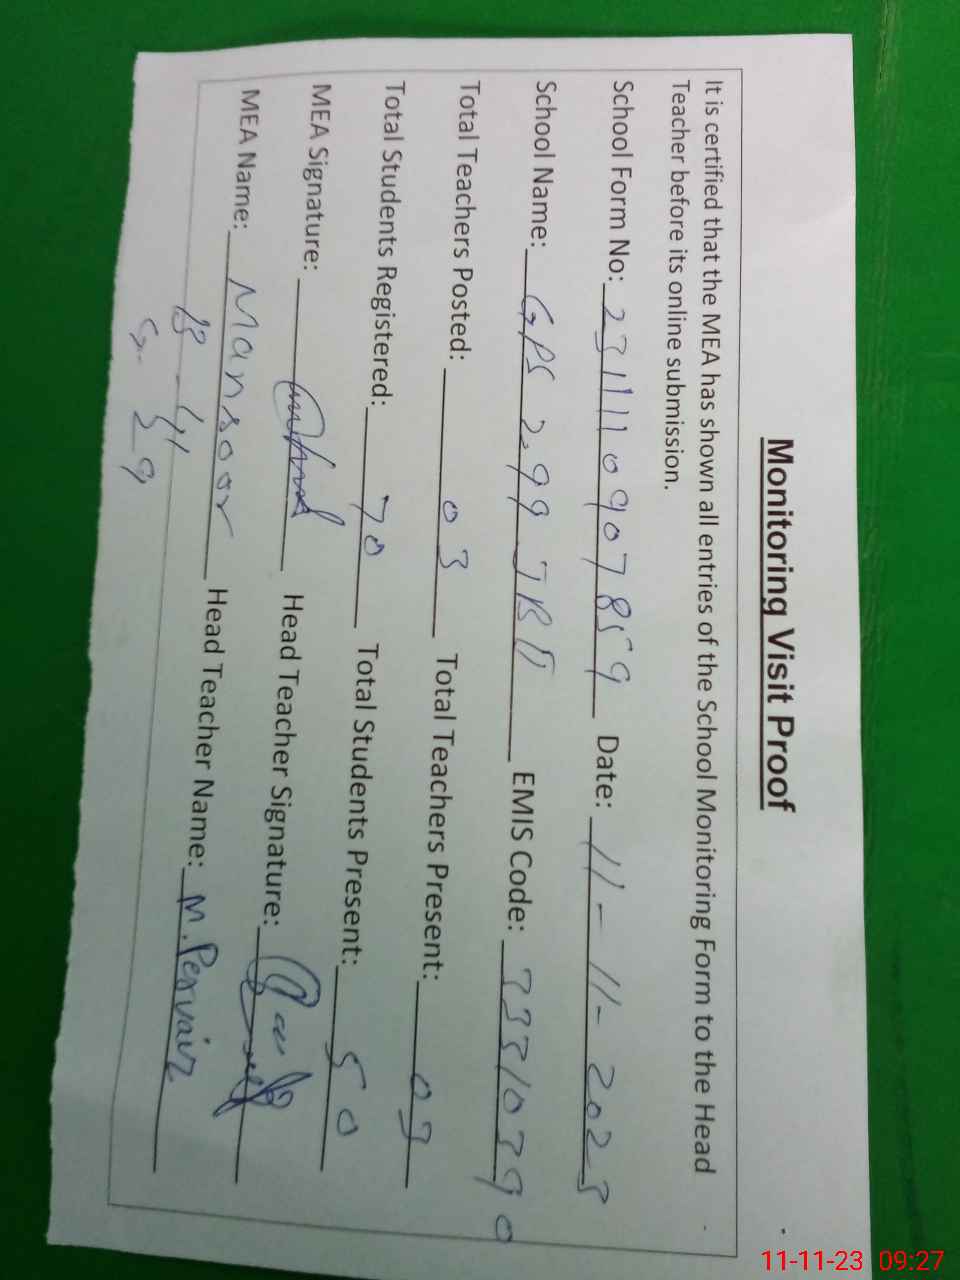 Monitoring Visit Proof
It is certified that the MEA has shown all entries of the School Monitoring Form to the Head
Teacher before its online submission.
School Form No: 231110907859 Date: 11-11-2023
School Name: GPS 299 JB II EMIS Code: 33310390
Total Teachers Posted: 03 Total Teachers Present: 03
Total Students Registered: 70 Total Students Present: 50
MEA Signature: Head Teacher Signature:
MEA Name: Mansoor Head Teacher Name: M. Pervaiz
11-11-23 09:27